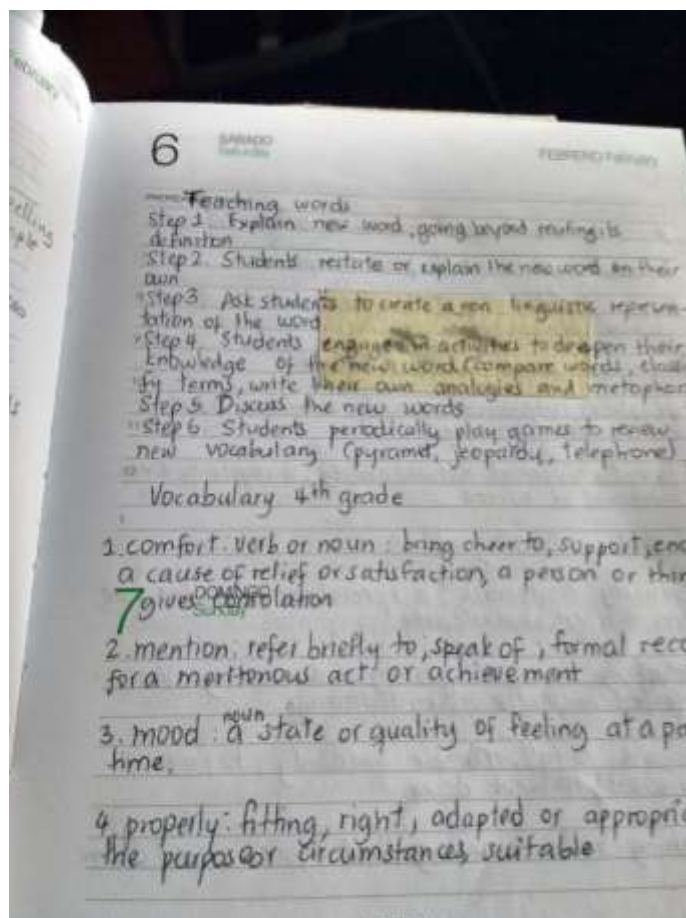 6 SABADO FEBRERO
Teaching words
Step 1. Explain new word, going beyond reciting its
definition
Step 2. Students restate or explain the new word on their
own
Step 3. Ask students to create a non linguistic represen-
tation of the word
Step 4. Students engage in activities to deepen their
knowledge of the new word (compare words, classi
fy terms, write their own analogies and metaphor
Step 5. Discuss the new words
Step 6. Students periodically play games to review
new vocabulary (pyramid, jeopardy, telephone)
Vocabulary 4th grade
1. comfort: verb or noun: bring cheer to, support, enc
a cause of relief or satisfaction, a person or thin
7 DOMINGO
gives consolation
2. mention: refer briefly to, speak of, formal reco
for a meritorious act or achievement
noun
3. mood: a state or quality of feeling at a pa
time.
4. properly: fitting, right, adapted or appropri
the purpose or circumstances, suitable